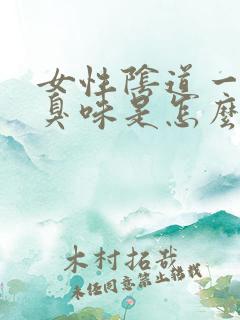 女性陰道一
臭味是怎麼
木村拓哉
未經同意禁止轉載